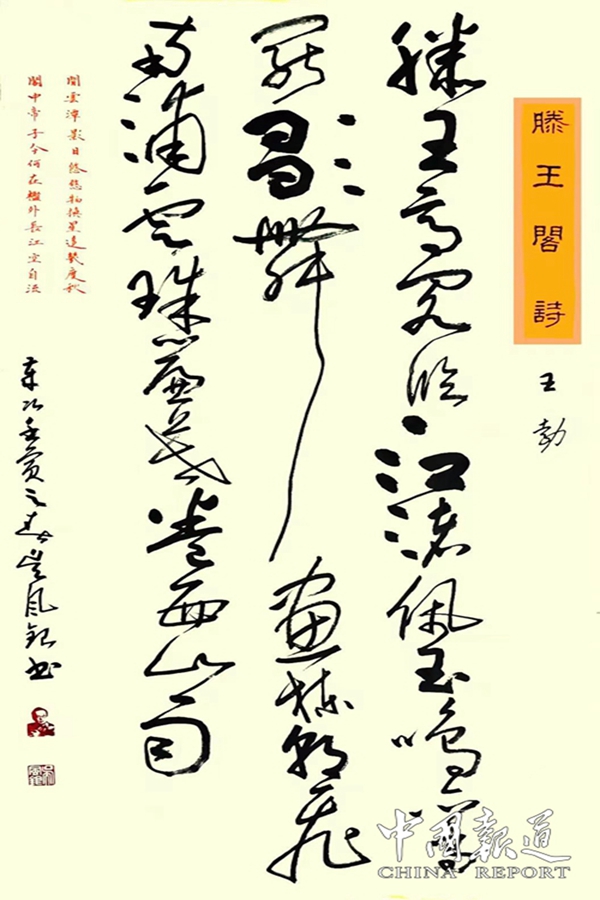 滕王閣詩
王勃
滕王高阁临江渚佩玉鸣鸾
罷歌舞画栋朝飞
南浦云珠簾暮卷西山雨
閒雲潭影日悠悠物換星移幾度秋
閣中帝子今何在檻外長江空自流
壬寅之春吴凤銀书
中國報道
CHINA REPORT